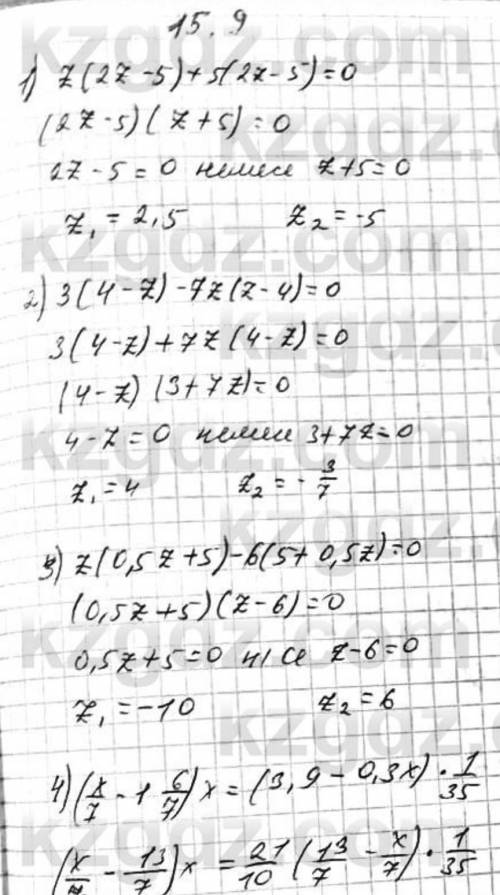 15.9
1) z(2z-5)+5(2z-5)=0
(2z-5)(z+5)=0
2z-5=0 немесе z+5=0
z₁=2,5 z₂=-5
2) 3(4-z)-7z(z-4)=0
3(4-z)+7z(4-z)=0
(4-z)(3+7z)=0
4-z=0 немесе 3+7z=0
z₁=4 z₂=-3/7
3) z(0,5z+5)-6(5+0,5z)=0
(0,5z+5)(z-6)=0
0,5z+5=0 н/се z-6=0
z₁=-10 z₂=6
4) (x/7-1 6/7)x=(3,9-0,3x)·1/35
(x/7-13/7)x=21/10(13/7-x/7)·1/35
kzgdz.com